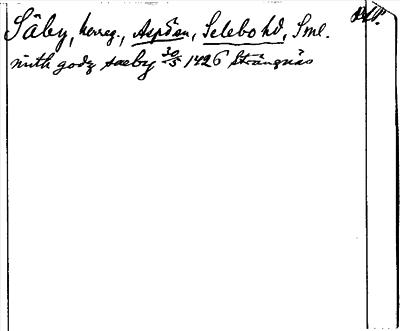 Säby, herrg., Aspöen, Selebo hd, Sml.
mith godz saeby 30/5 1426 Strängnäs